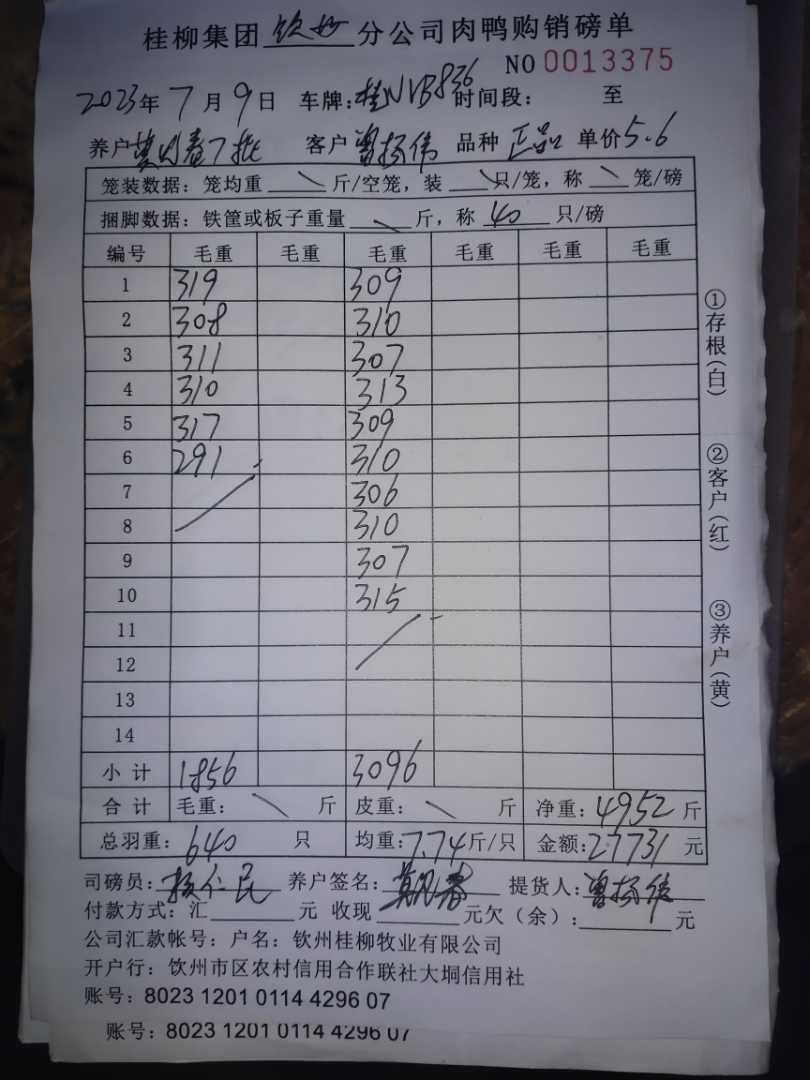 桂柳集团钦州分公司肉鸭购销磅单
NO 0013375
2023年7月9日 车牌:桂NVB836 时间段: 至
养户 7批 客户曾扬伟 品种正品 单价5.6
笼装数据:笼均重 \ 斤/空笼,装 \ 只/笼,称 \ 笼/磅
捆脚数据:铁筐或板子重量 \ 斤,称 40 只/磅
编号 毛重 毛重 毛重 毛重 毛重 毛重
1 319 309
2 308 310
3 311 307
4 310 313
5 317 309
6 291 310
7 306
8 310
9 307
10 315
11
12
13
14
小计 1856 3096
合计 毛重: \ 斤 皮重: \ 斤 净重:4952斤
总羽重:640 只 均重:7.74斤/只 金额:27731元
司磅员: 仁民 养户签名: 提货人:曾扬伟
付款方式:汇 元 收现 元欠(余): 元
公司汇款帐号:户名:钦州桂柳牧业有限公司
开户行:钦州市区农村信用合作联社大垌信用社
账号:8023 1201 0114 4296 07
账号:8023 1201 0114 4296 07
①存根(白)
②客户(红)
③养户(黄)